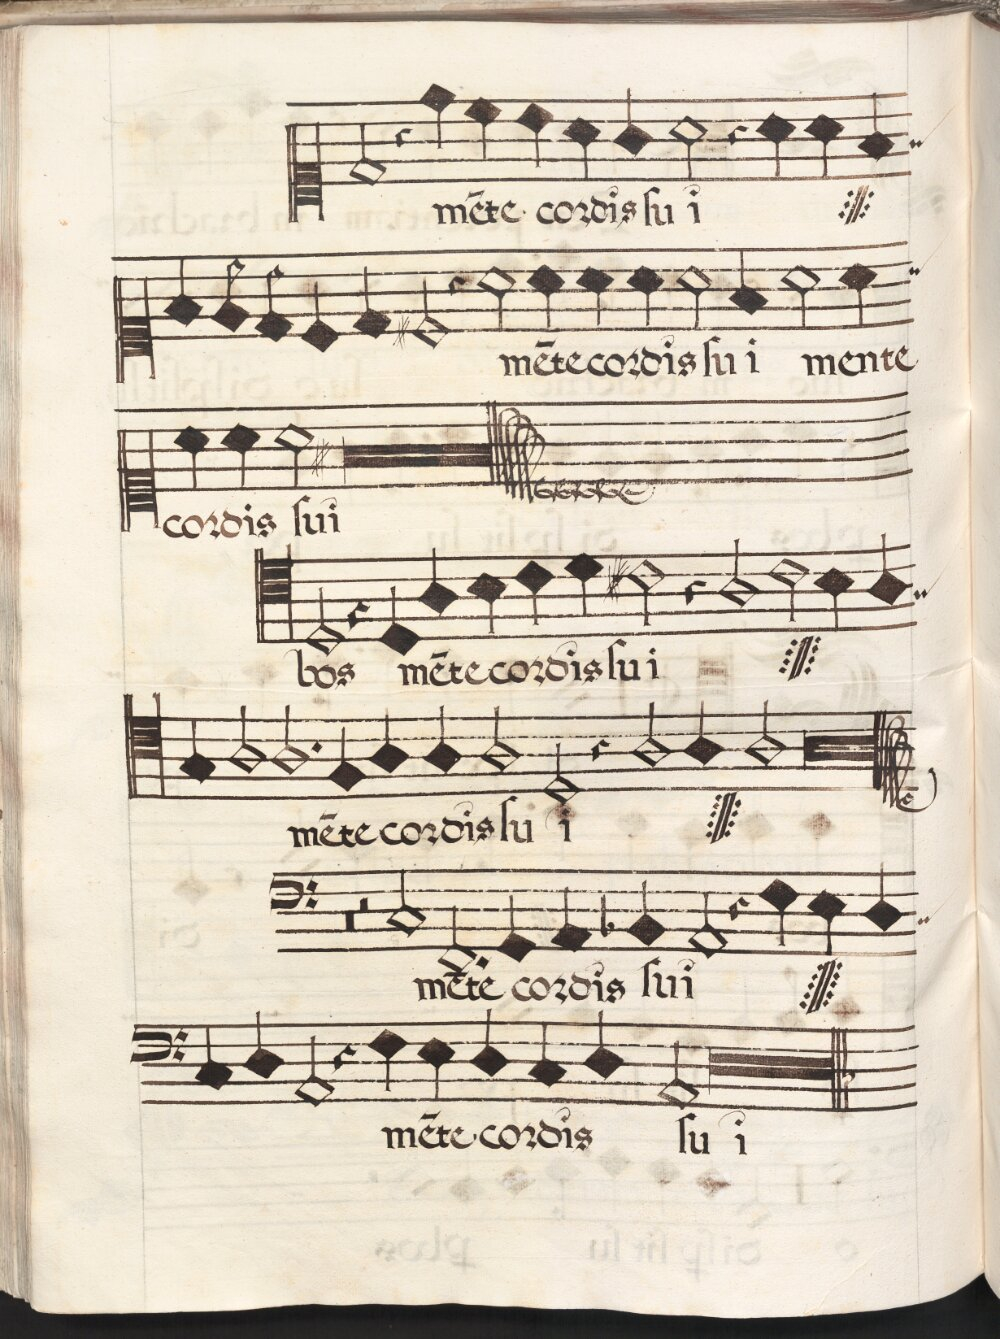 mēte cordis su i
mēte cordis su i mente
cordis sui
bos mēte cordis su i
mēte cordis su i
mēte cordis sui
mēte cordis su i